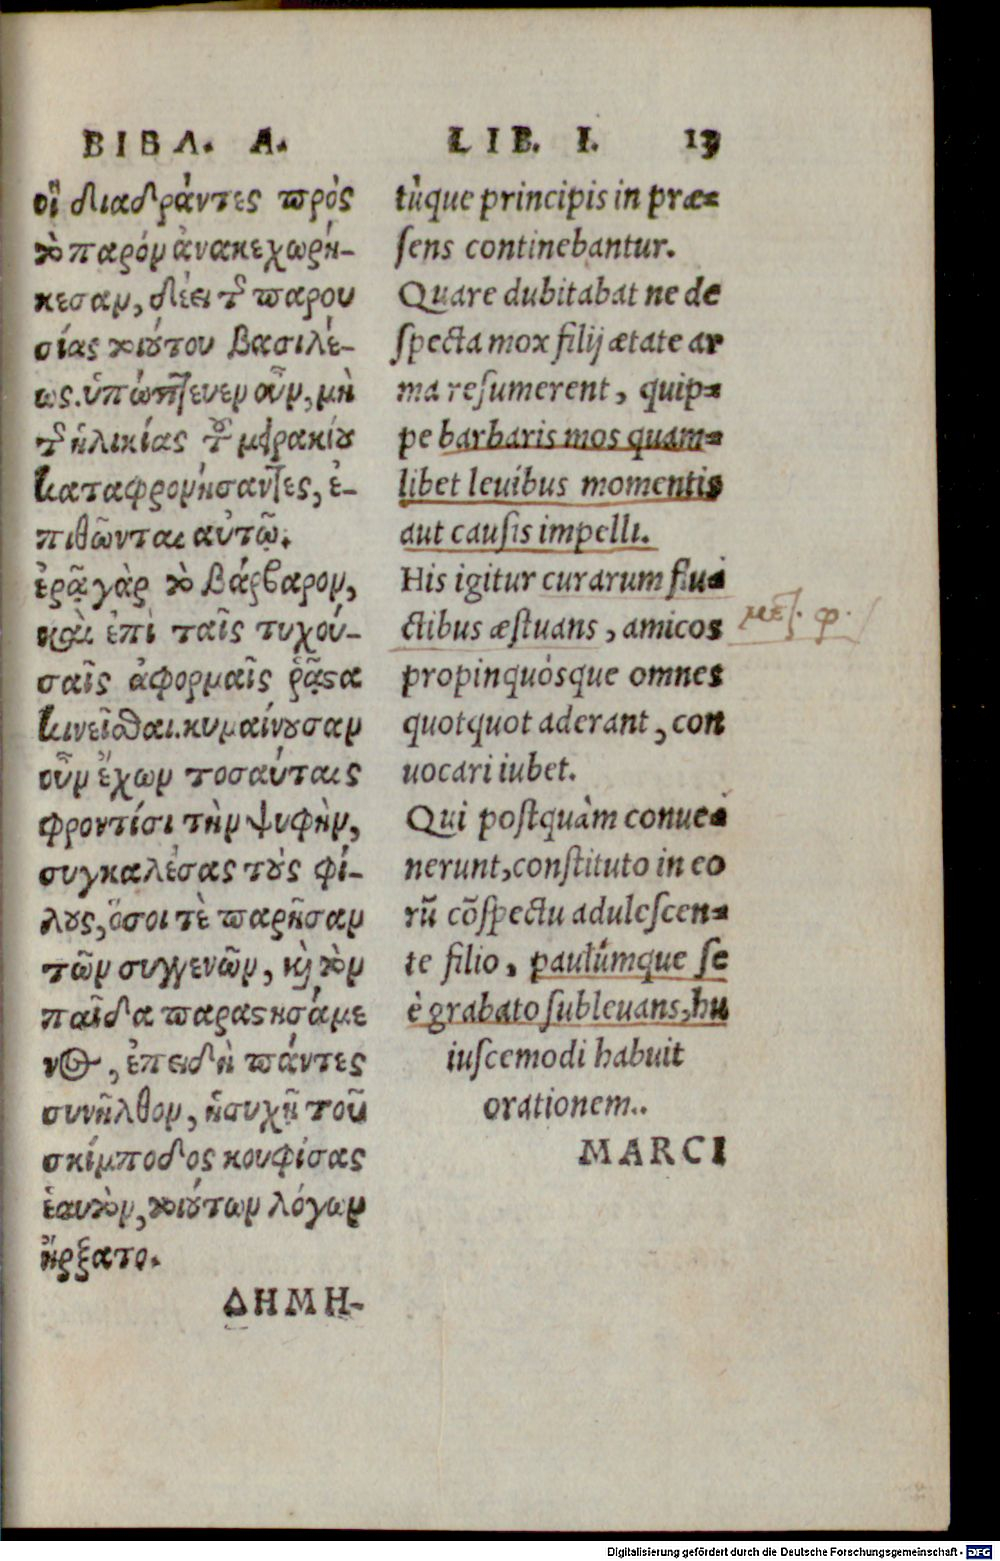 ΒΙΒΛ. Α.
οἳ διαδράντες πρὸς
τὸ παρὸν ἀνακεχωρή-
κεσαν, δέει τ̂ παρου
σίας τοιούτου βασιλέ-
ως. ὑπώπτευεν οὖν, μὴ
τ̂ ἡλικίας τοῦ μειρακίου
καταφρονήσαντες, ἐ-
πιθῶνται αὐτῷ.
ἐρᾷ γὰρ τὸ βάρβαρον,
καὶ ἐπὶ ταῖς τυχού-
σαῖς ἀφορμαῖς ῥᾷστα
κινεῖσθαι. κυμαίνουσαν
οὖν ἔχων τοσαύταις
φροντίσι τὴν ψυφὴν,
συγκαλέσας τοὺς φί-
λους, ὅσοι τὲ παρῆσαν
τῶν συγγενῶν, καὶ τὸν
παῖδα παραστησάμε
νος, ἐπειδὴ πάντες
συνῆλθον, ἡσυχῆ τοῦ
σκίμποδος κουφίσας
ἑαυτὸν, τοιούτων λόγων
ἤρξατο.
ΔΗΜΗ-
LIB. I. 13
tûque principis in præ-
sens continebantur.
Quare dubitabat ne de
specta mox filij ætate ar
ma resumerent, quip-
pe barbaris mos quam-
libet leuibus momentis
aut causis impelli.
His igitur curarum flu-
ctibus æstuans, amicos
propinquósque omnes
quotquot aderant, con
uocari iubet.
Qui postquàm conue-
nerunt, constituto in eo
rũ cõspectu adulescen-
te filio, paulúmque se
è grabato subleuans, hu
iuscemodi habuit
orationem..
MARCI
Digitalisierung gefördert durch die Deutsche Forschungsgemeinschaft - DFG